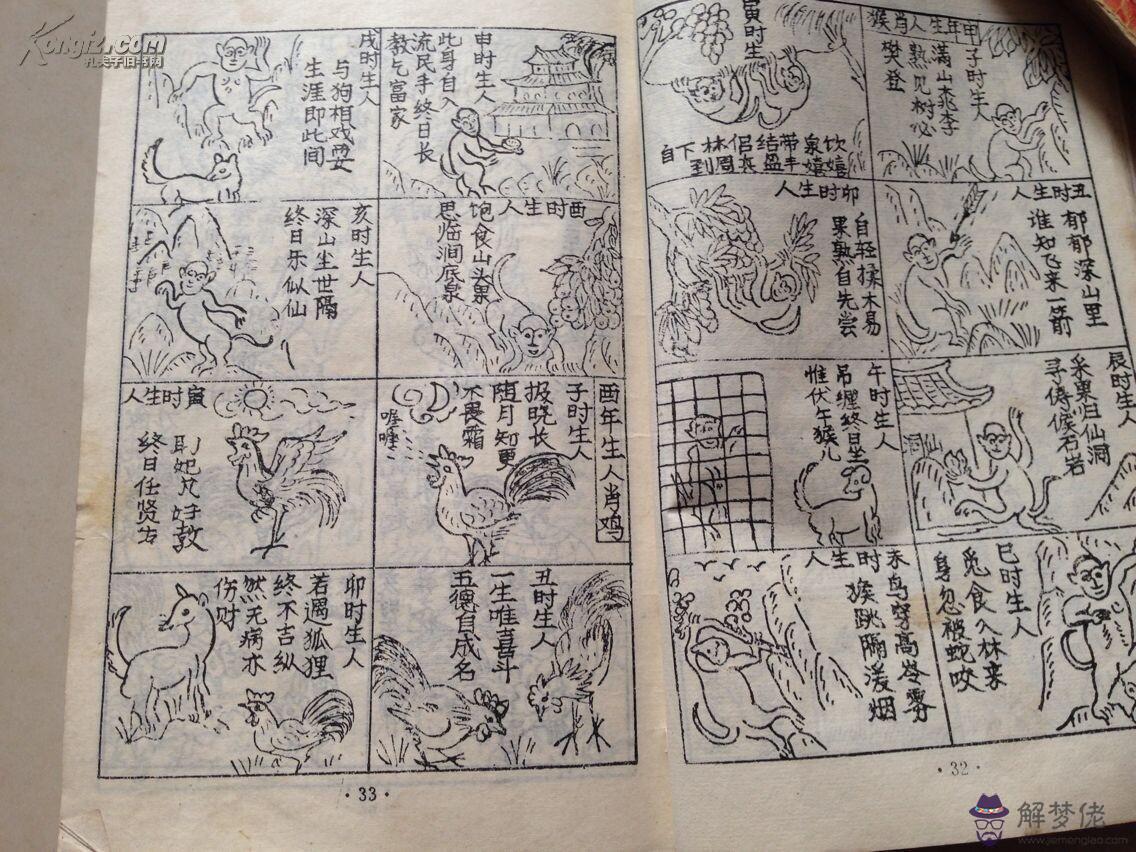 申年生人肖猴
子时生人
满山桃李
熟见树必
樊登
丑时生人
郁郁深山里
谁知飞来一箭
寅时生
饮泉带结侣林下自
嬉嬉丰盈去周到
卯时生人
自轻揉木易
果熟自先尝
辰时生人
采果归仙洞
寻俦候石岩
巳时生人
觅食入林来
身忽被蛇咬
午时生人
吊缠终日坐
惟伏午猴儿
未时生人
鸟穿高岑雾
猴跳隔湲烟
·32·
申时生人
此身自入
流民手终日长
教乞富家
酉时生人
饱食山头果
思临涧底泉
戌时生人
与狗相戏耍
生涯即此间
亥时生人
深山尘世隔
终日乐似仙
酉年生人肖鸡
子时生人
报晓长
随月知更
不畏霜
喔喔
丑时生人
一生唯喜斗
五德自成名
寅时生人
终日任贤
卯时生人
若遇狐狸
终不吉纵
然无病亦
伤财
·33·
Kongfz.com
孔夫子旧书网
解梦佬
www.jiemenglao.com